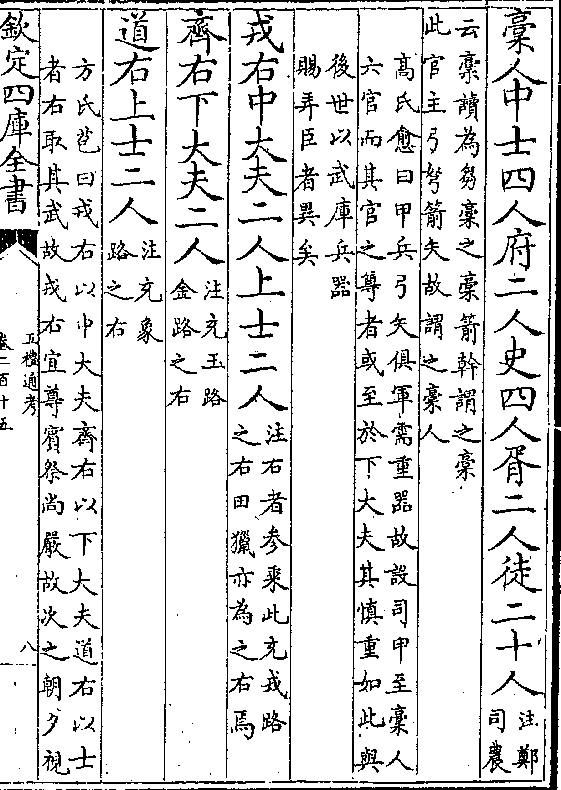 槀人中士四人府二人史四人胥二人徒二十人注鄭司農
云槀讀為芻槀之槀箭幹謂之槀
此官主弓弩箭矢故謂之槀人
髙氏愈曰甲兵弓矢俱軍需重器故設司甲至槀人
六官而其官之尊者或至於下大夫其慎重如此與
後世以武庫兵器
賜弄臣者異矣
戎右中大夫二人上士二人注右者參乘此充戎路
之右田獵亦為之右焉
齊右下大夫二人注充玉路
金路之右
道右上士二人注充象
路之右
方氏苞曰戎右以中大夫齊右以下大夫道右以士
者右取其武故戎右宜尊賓祭尚嚴故次之朝夕視
欽定四庫全書
五禮通考
卷二百十五
八